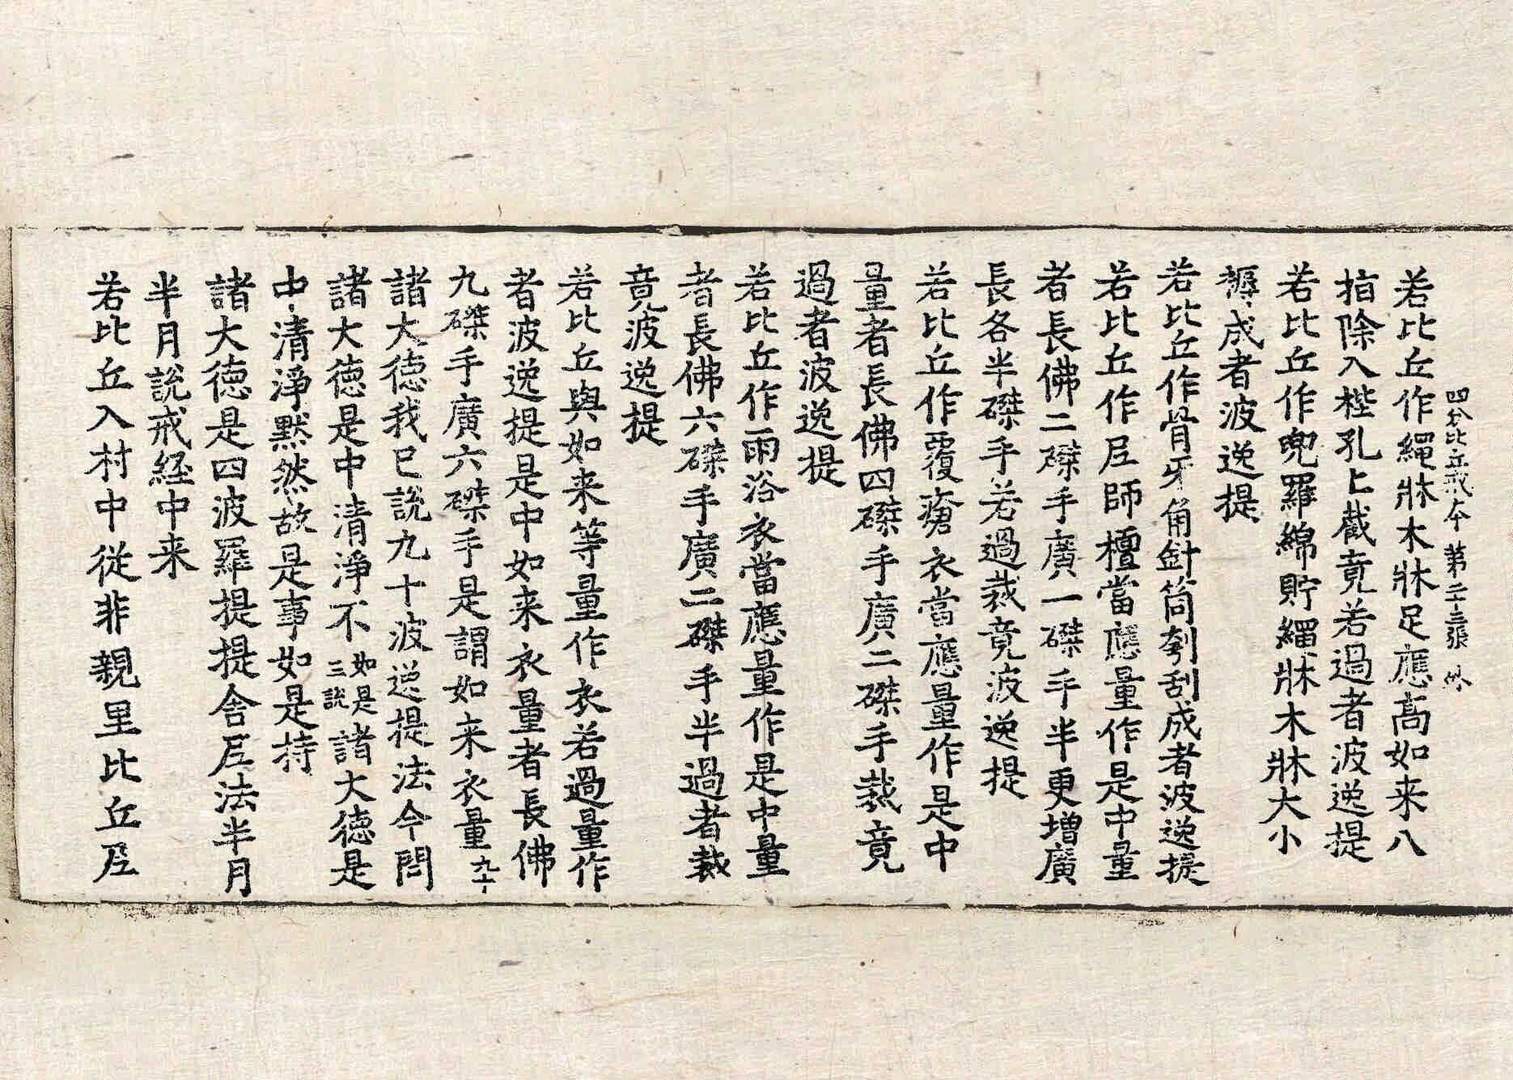 四分比丘戒本 第二十三張
若比丘作繩牀木牀足應高如来八
指除入梐孔上截竟若過者波逸提
若比丘作兜羅綿貯繩牀木牀大小
褥成者波逸提
若比丘作骨牙角針筒刳刮成者波逸提
若比丘作尼師檀當應量作是中量
者長佛二磔手廣一磔手半更增廣
長各半磔手若過裁竟波逸提
若比丘作覆瘡衣當應量作是中
量者長佛四磔手廣二磔手裁竟
過者波逸提
若比丘作雨浴衣當應量作是中量
者長佛六磔手廣二磔手半過者裁
竟波逸提
若比丘與如来等量作衣若過量作
者波逸提是中如来衣量者長佛
九磔手廣六磔手是謂如来衣量 九十
諸大德我已說九十波逸提法今問
諸大德是中清淨不 如是三說 諸大德是
中清淨默然故是事如是持
諸大德是四波羅提提舍尼法半月
半月說戒経中来
若比丘入村中從非親里比丘尼